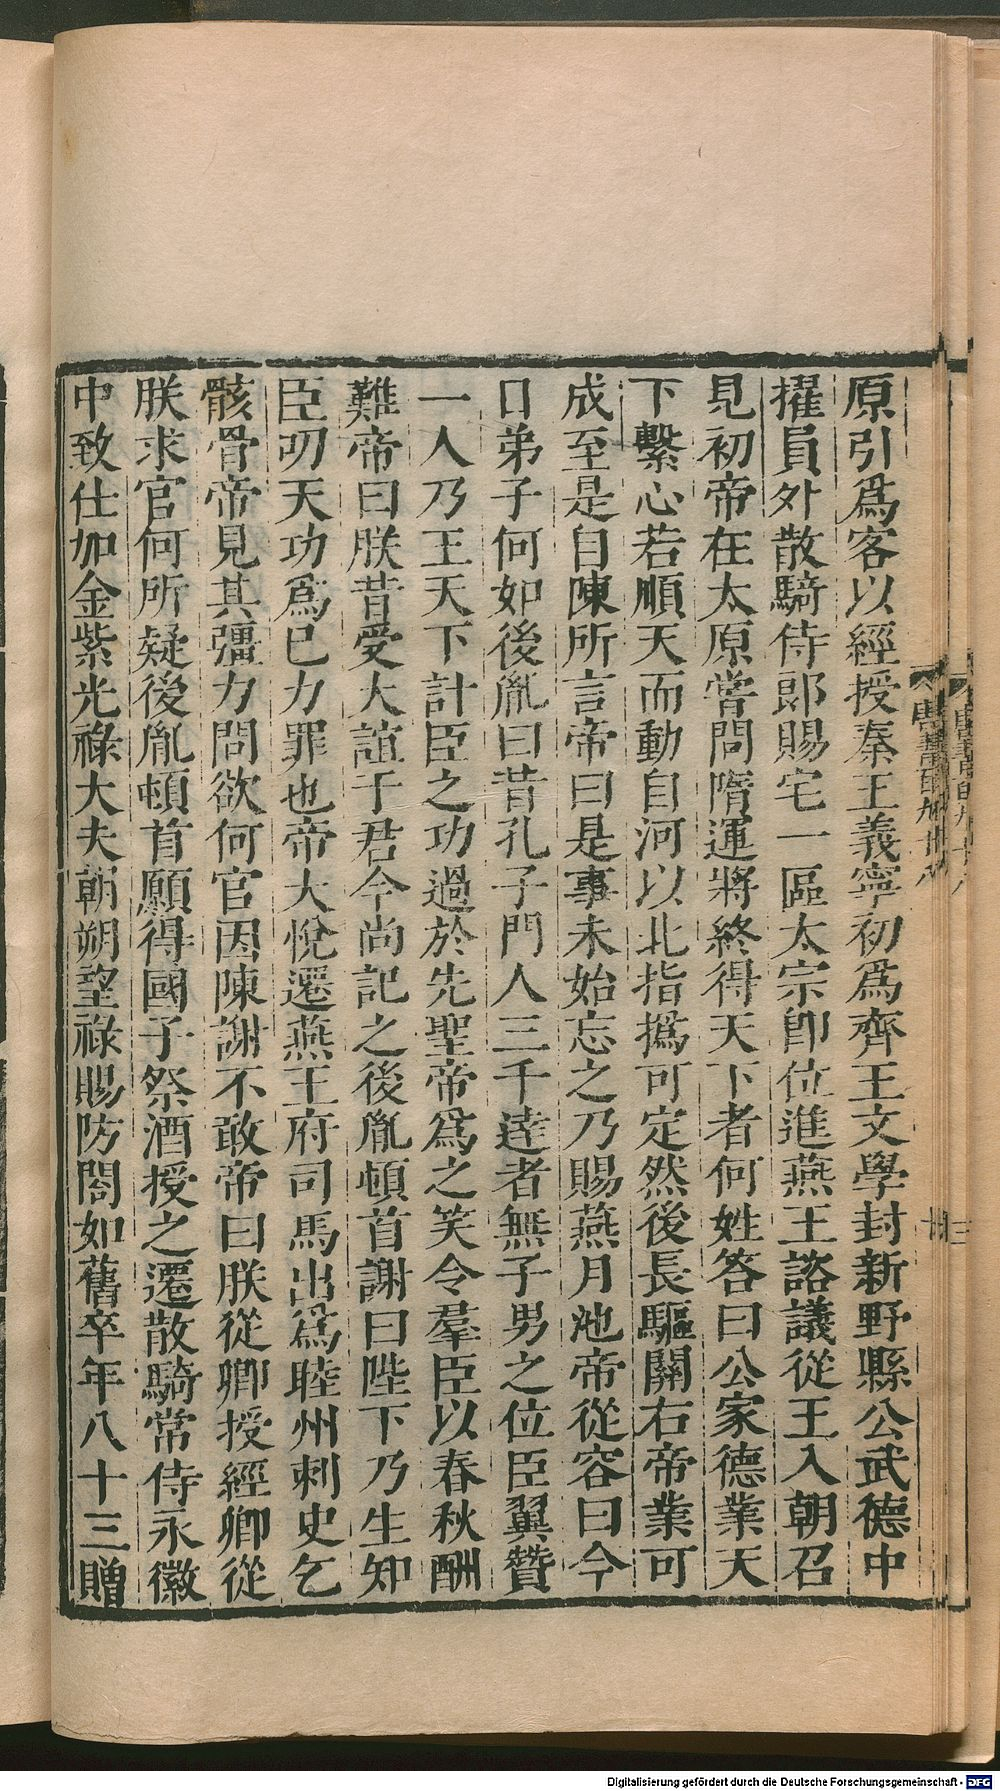 原引爲客以經授秦王義寧初爲齊王文學封新野縣公武德中
擢員外散騎侍郎賜宅一區太宗卽位進燕王諮議從王入朝召
見初帝在太原嘗問隋運將終得天下者何姓答曰公家德業天
下繫心若順天而動自河以北指撝可定然後長驅關右帝業可
成至是自陳所言帝曰是事未始忘之乃賜燕月池帝從容曰今
日弟子何如後胤曰昔孔子門人三千達者無子男之位臣翼贊
一人乃王天下計臣之功過於先聖帝爲之笑令羣臣以春秋酬
難帝曰朕昔受大誼于君今尚記之後胤頓首謝曰陛下乃生知
臣叨天功爲己力罪也帝大悅遷燕王府司馬出爲睦州刺史乞
骸骨帝見其彊力問欲何官因陳謝不敢帝曰朕從卿授經卿從
朕求官何所疑後胤頓首願得國子祭酒授之遷散騎常侍永徽
中致仕加金紫光祿大夫朝朔望祿賜防閤如舊卒年八十三贈
Digitalisierung gefördert durch die Deutsche Forschungsgemeinschaft - DFG